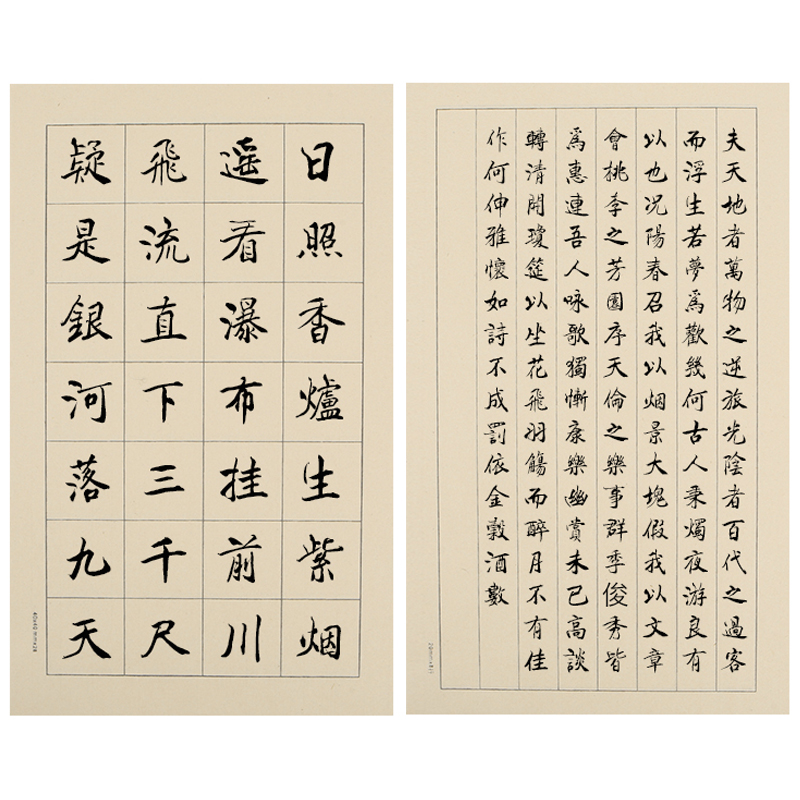 日照香爐生紫烟
遥看瀑布挂前川
飛流直下三千尺
疑是銀河落九天
40x40mmx28
夫天地者萬物之逆旅光陰者百代之過客
而浮生若夢爲歡幾何古人秉燭夜游良有
以也况陽春召我以烟景大塊假我以文章
會桃李之芳園序天倫之樂事群季俊秀皆
爲惠連吾人咏歌獨慚康樂幽賞未已高談
轉清開瓊筵以坐花飛羽觴而醉月不有佳
作何伸雅懷如詩不成罰依金穀酒數